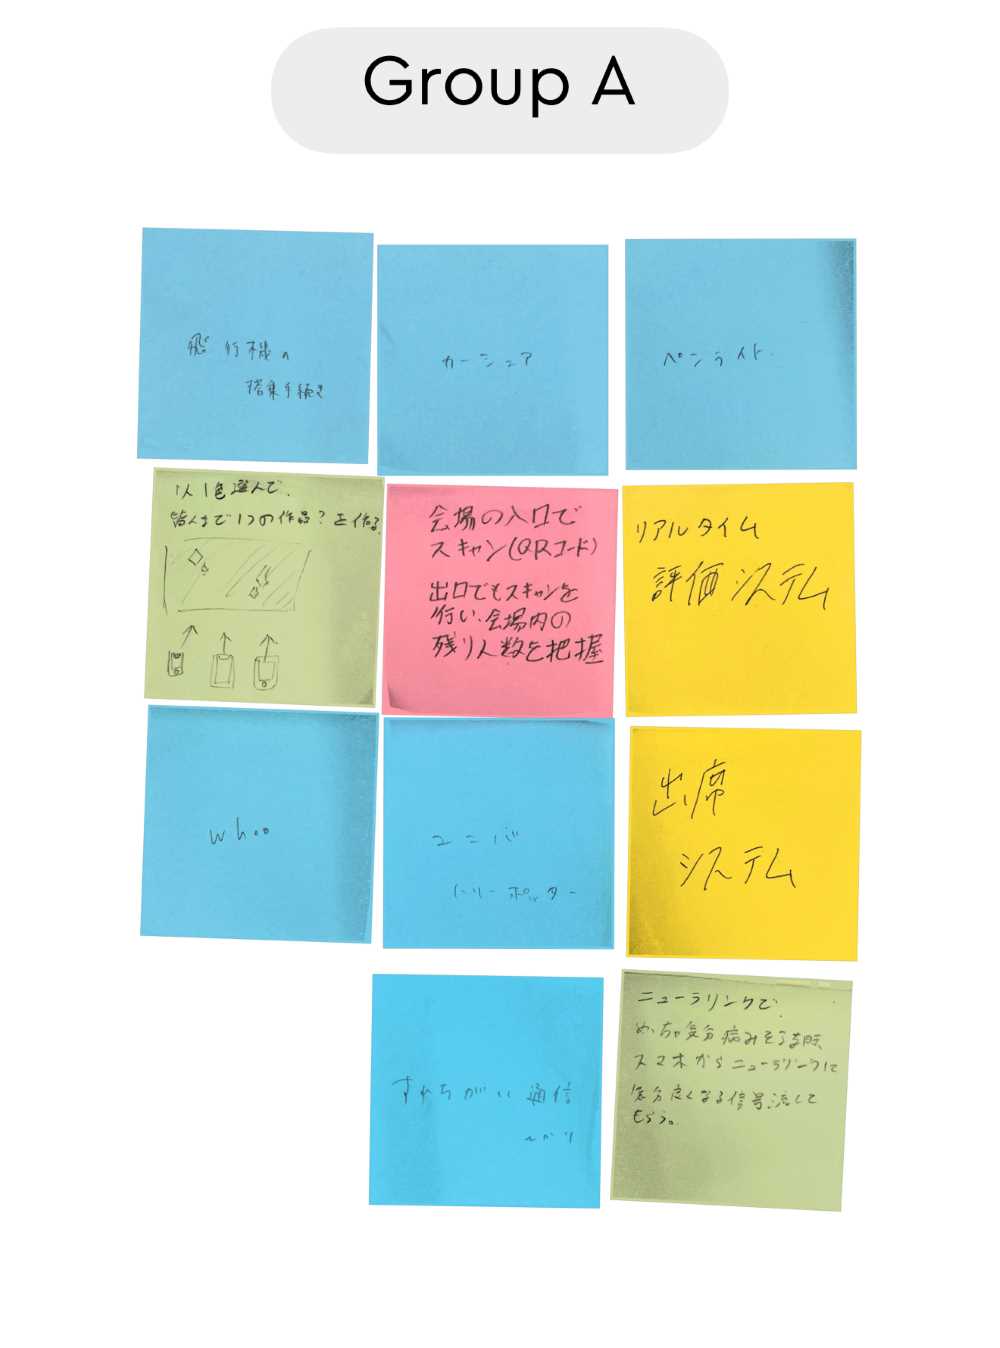 Group A
飛行機の
搭乗手続き
カーシェア
ペンライト
1人1色選んで、
皆んなで1つの作品?を作る。
会場の入口で
スキャン(QRコード)
出口でもスキャンを
行い、会場内の
残り人数を把握
リアルタイム
評価システム
whoo
ユニバ
ハリーポッター
出席
システム
すれちがい通信
ニューラリンクで、
めっちゃ気分病みそうな時
スマホからニューラリンクに
気分良くなる信号流して
もらう。